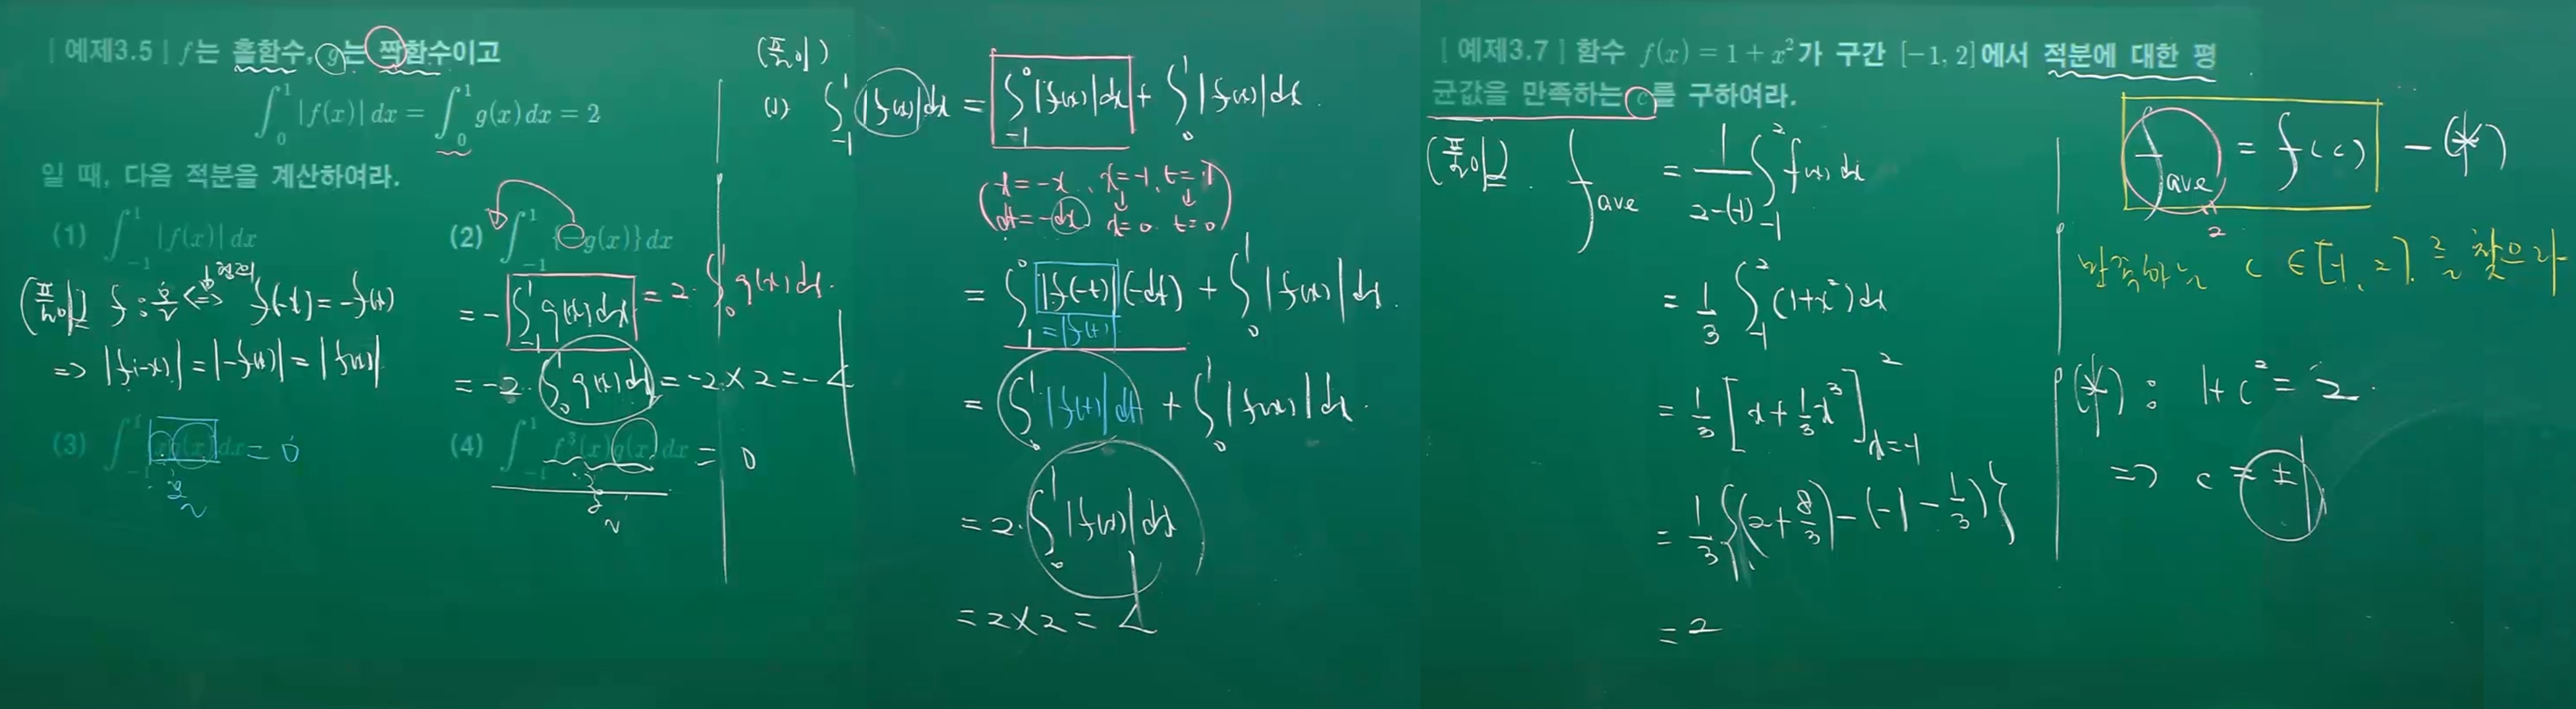 [예제3.5] f는 홀함수, g는 짝함수이고
∫_0^1 |f(x)| dx = ∫_0^1 g(x) dx = 2
일 때, 다음 적분을 계산하여라.
(1) ∫_{-1}^1 |f(x)| dx
(2) ∫_{-1}^1 {-g(x)} dx
(풀이) f : 홀 <=> f(-x) = -f(x)
정의
=> |f(-x)| = |-f(x)| = |f(x)|
= -∫_{-1}^1 g(x) dx = 2·∫_0^1 g(x) dx.
= -2·∫_0^1 g(x) dx = -2×2 = -4
(3) ∫_{-1}^1 xg(x) dx = 0
홀
(4) ∫_{-1}^1 f³(x)g(x) dx = 0
홀
(풀이)
(1) ∫_{-1}^1 |f(x)| dx = ∫_{-1}^0 |f(x)| dx + ∫_0^1 |f(x)| dx.
(t = -x, x = -1, t = 1
dt = -dx x = 0 t = 0)
= ∫_1^0 |f(-t)| (-dt) + ∫_0^1 |f(x)| dx.
= |f(t)|
= ∫_0^1 |f(t)| dt + ∫_0^1 |f(x)| dx.
= 2·∫_0^1 |f(x)| dx
= 2×2 = 4
[예제3.7] 함수 f(x) = 1 + x² 가 구간 [-1, 2]에서 적분에 대한 평
균값을 만족하는 c를 구하여라.
(풀이) f_ave = 1/(2-(-1)) ∫_{-1}^2 f(x) dx
= 1/3 ∫_{-1}^2 (1+x²) dx
= 1/3 [x + 1/3 x³]_{x=-1}^2
= 1/3 {(2 + 8/3) - (-1 - 1/3)}
= 2
f_ave = f(c) - (*)
2
만족하는 c ∈ [-1, 2]. 를 찾으라
(*) : 1 + c² = 2.
=> c = ±1